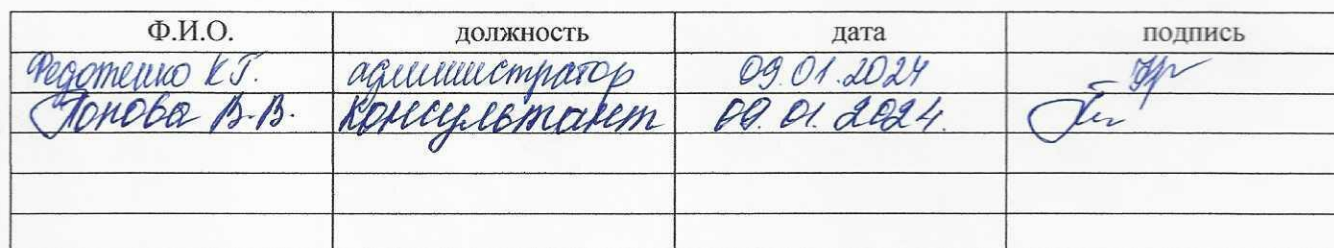 Ф.И.О. должность дата подпись
Федотенко К.Г. администратор 09.01.2024
Попова В.В. консультант 09.01.2024.